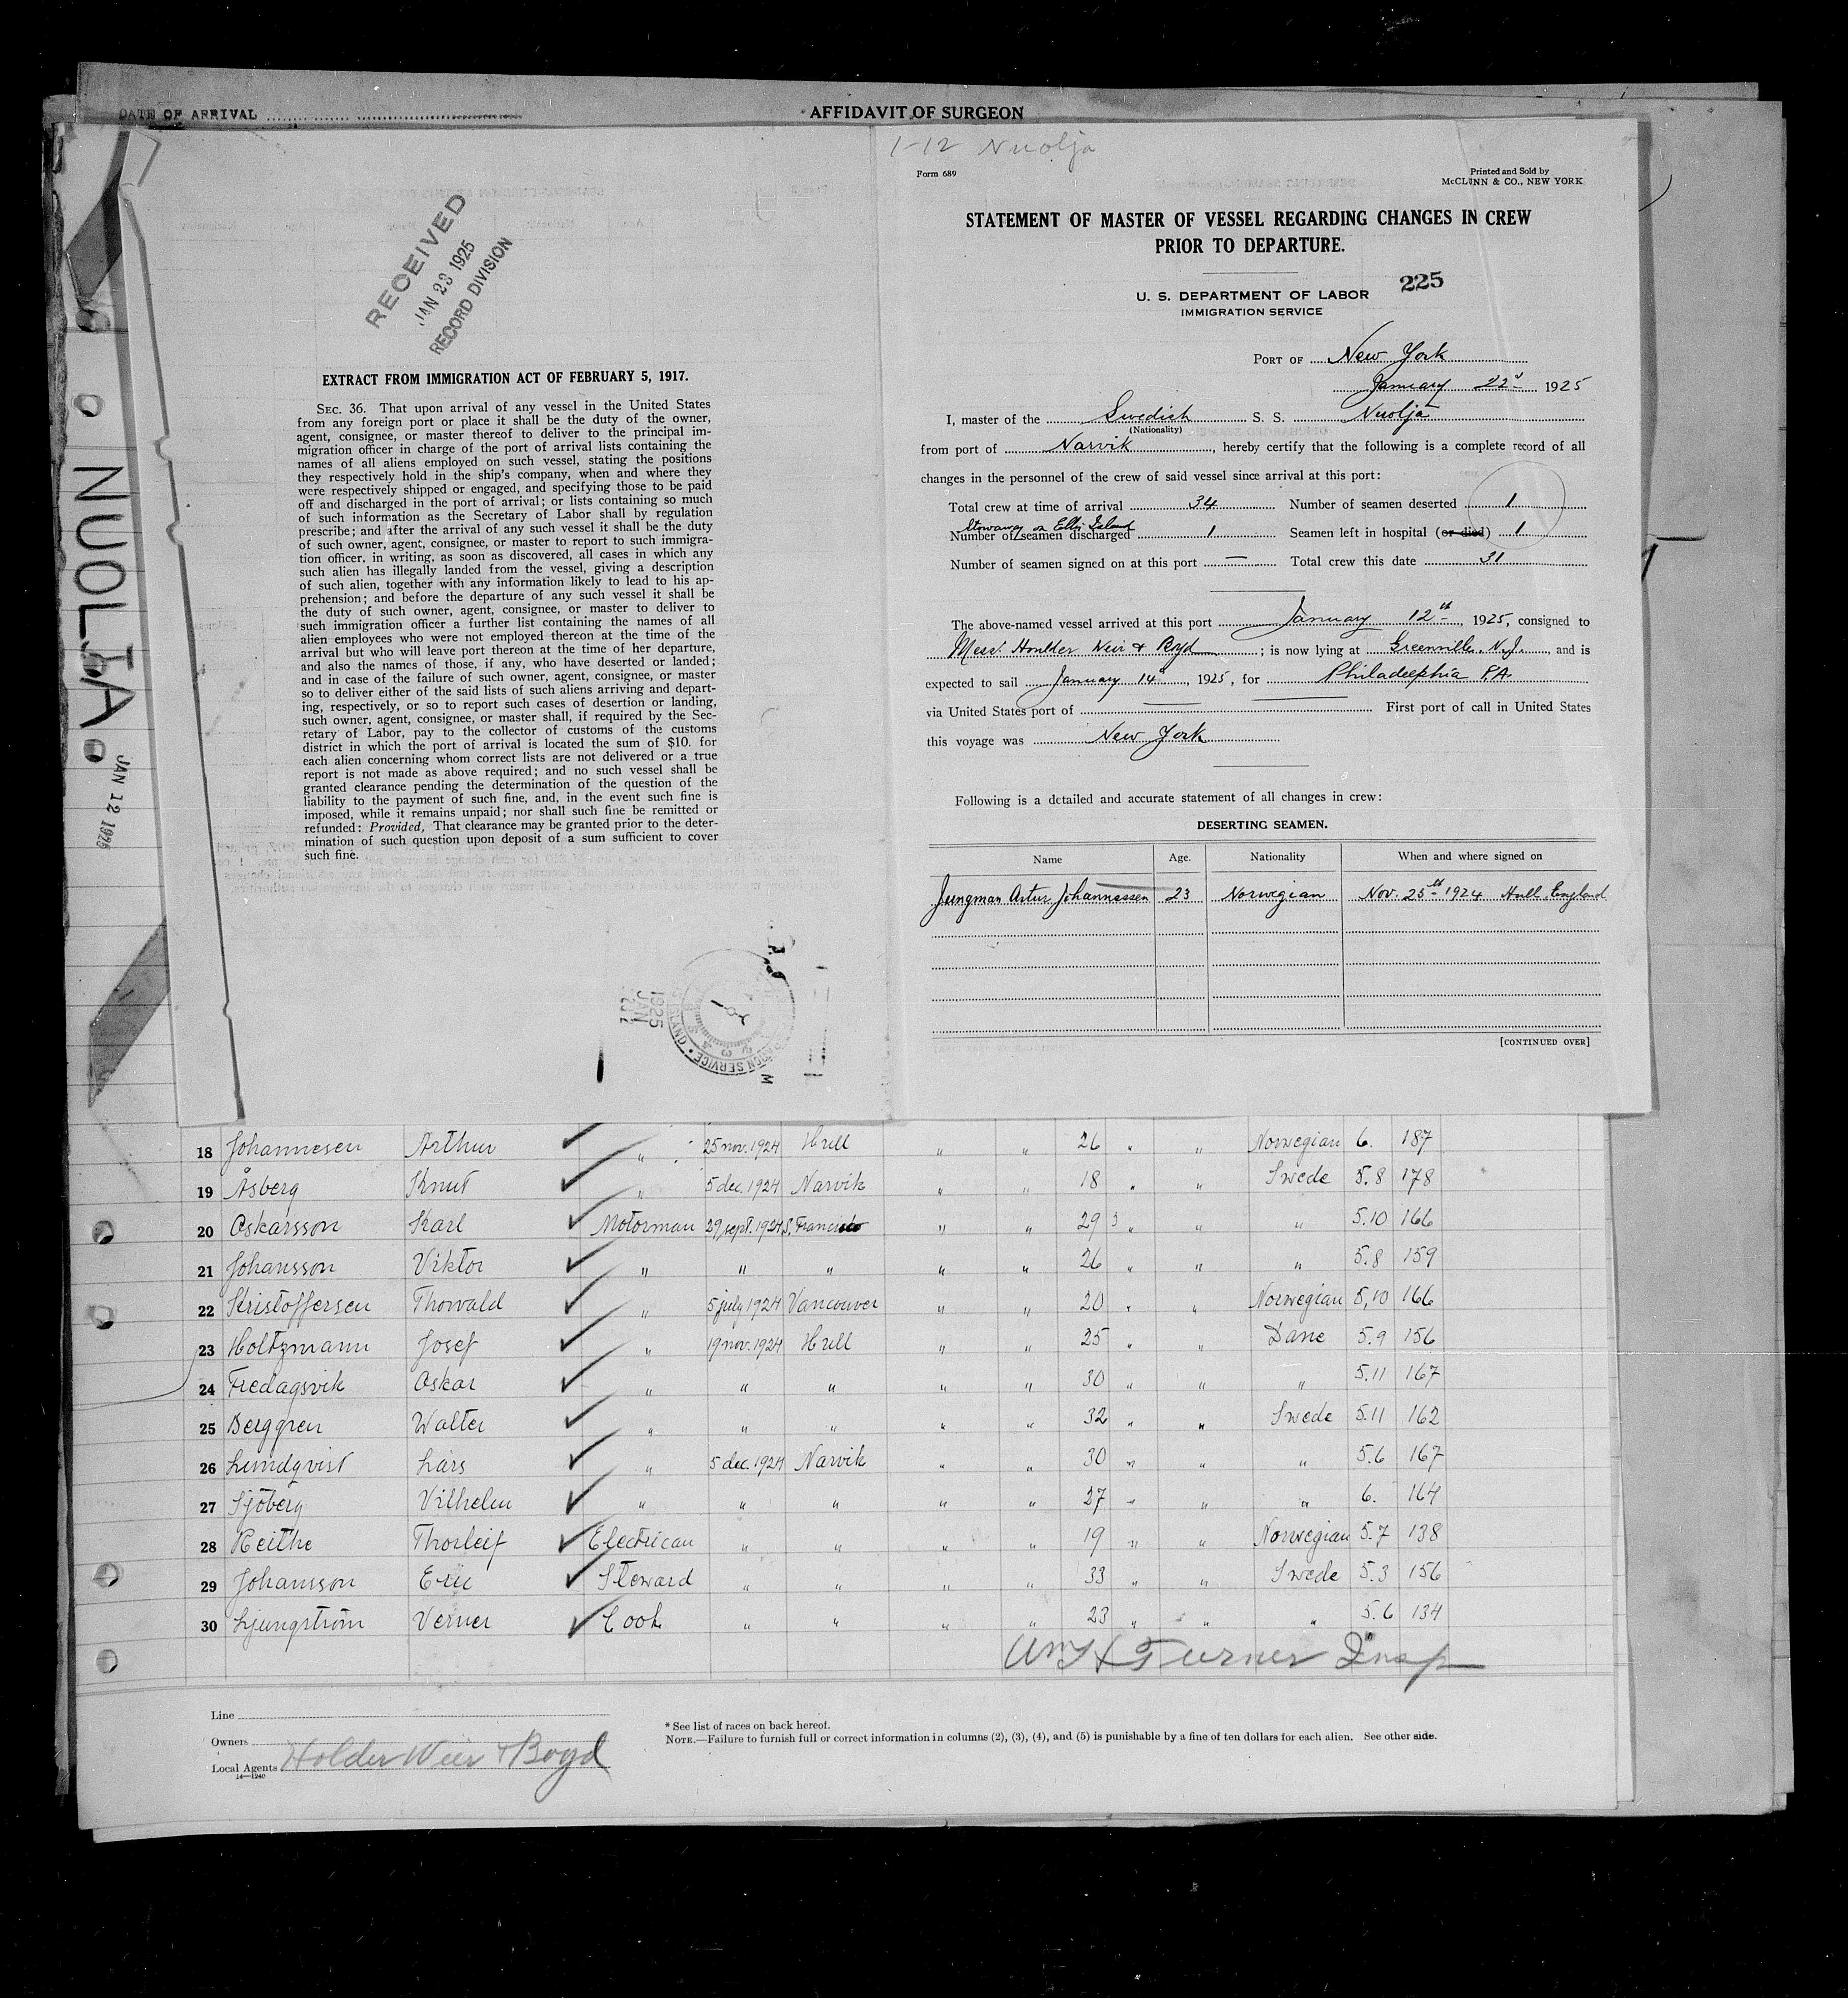 DATE OF ARRIVAL
AFFIDAVIT OF SURGEON
NUOLJA
JAN 12 1925
RECEIVED
JAN 23 1925
RECORD DIVISION
EXTRACT FROM IMMIGRATION ACT OF FEBRUARY 5, 1917.
SEC. 36. That upon arrival of any vessel in the United States
from any foreign port or place it shall be the duty of the owner,
agent, consignee, or master thereof to deliver to the principal im-
migration officer in charge of the port of arrival lists containing the
names of all aliens employed on such vessel, stating the positions
they respectively hold in the ship's company, when and where they
were respectively shipped or engaged, and specifying those to be paid
off and discharged in the port of arrival; or lists containing so much
of such information as the Secretary of Labor shall by regulation
prescribe; and after the arrival of any such vessel it shall be the duty
of such owner, agent, consignee, or master to report to such immigra-
tion officer, in writing, as soon as discovered, all cases in which any
such alien has illegally landed from the vessel, giving a description
of such alien, together with any information likely to lead to his ap-
prehension; and before the departure of any such vessel it shall be
the duty of such owner, agent, consignee, or master to deliver to
such immigration officer a further list containing the names of all
alien employees who were not employed thereon at the time of the
arrival but who will leave port thereon at the time of her departure,
and also the names of those, if any, who have deserted or landed;
and in case of the failure of such owner, agent, consignee, or master
so to deliver either of the said lists of such aliens arriving and depart-
ing, respectively, or so to report such cases of desertion or landing,
such owner, agent, consignee, or master shall, if required by the Sec-
retary of Labor, pay to the collector of customs of the customs
district in which the port of arrival is located the sum of $10. for
each alien concerning whom correct lists are not delivered or a true
report is not made as above required; and no such vessel shall be
granted clearance pending the determination of the question of the
liability to the payment of such fine, and, in the event such fine is
imposed, while it remains unpaid; nor shall such fine be remitted or
refunded: Provided, That clearance may be granted prior to the deter-
mination of such question upon deposit of a sum sufficient to cover
such fine.
1-12 Nuolja
Form 689
Printed and Sold by
McCLUNN & CO., NEW YORK
STATEMENT OF MASTER OF VESSEL REGARDING CHANGES IN CREW
PRIOR TO DEPARTURE.
225
U. S. DEPARTMENT OF LABOR
IMMIGRATION SERVICE
PORT OF New York
January 22d 1925
I, master of the Swedish S. S. Nuolja
(Nationality)
from port of Narvik, hereby certify that the following is a complete record of all
changes in the personnel of the crew of said vessel since arrival at this port:
Total crew at time of arrival 34 Number of seamen deserted 1
Stowaway on Ellis Island
Number of seamen discharged 1 Seamen left in hospital (or died) 1
Number of seamen signed on at this port — Total crew this date 31
The above-named vessel arrived at this port January 12th, 1925, consigned to
Mess: Houlder Weir & Boyd; is now lying at Greenville, N.J., and is
expected to sail January 14th, 1925, for Philadelphia PA.
via United States port of — First port of call in United States
this voyage was New York
Following is a detailed and accurate statement of all changes in crew:
DESERTING SEAMEN.
Name Age. Nationality When and where signed on
Jungman Artur Johannessen 23 Norwegian Nov. 25th 1924 Hull, England
[CONTINUED OVER]
18 Johannesen Arthur " 25 nov. 1924 Hull " " 26 " " Norwegian 6. 187
19 Åsberg Knut " 5 dec. 1924 Narvik " " 18 " " Swede 5.8 178
20 Oskarsson Karl Motorman 29 sept. 1924 S. Francisco " " 29 3 " " " 5.10 166
21 Johansson Viktor " " " " " 26 " " " 5.8 159
22 Kristoffersen Thorvald " 5 july 1924 Vancouver " " 20 " " Norwegian 5,10 166
23 Holtzmann Josef " 19 nov. 1924 Hull " " 25 " " Dane 5.9 156
24 Fredagsvik Oskar " " " " " 30 " " " 5.11 167
25 Berggren Walter " " " " " 32 " " Swede 5.11 162
26 Lundqvist Lars " 5 dec. 1924 Narvik " " 30 " " " 5.6 167
27 Sjöberg Vilhelm " " " " " 27 " " " 6. 164
28 Reithe Thorleif Electrican " " " " 19 " " Norwegian 5.7 138
29 Johansson Eric Steward " " " " 33 " " Swede 5.3 156
30 Ljungström Verner Cook " " " " 23 " " " 5.6 134
Wm H Turner Insp
Line
Owners
Local Agents Holder Weir & Boyd
14—1240
* See list of races on back hereof.
NOTE.—Failure to furnish full or correct information in columns (2), (3), (4), and (5) is punishable by a fine of ten dollars for each alien. See other side.